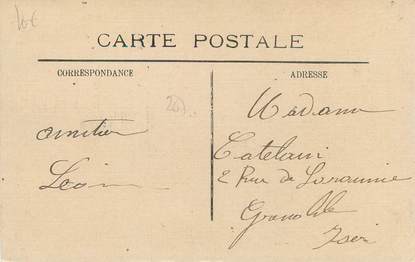 10€
CARTE POSTALE
CORRESPONDANCE
ADRESSE
Madame
Catelani
2 Rue de
Grenoble
Isère
amitiés
Léon